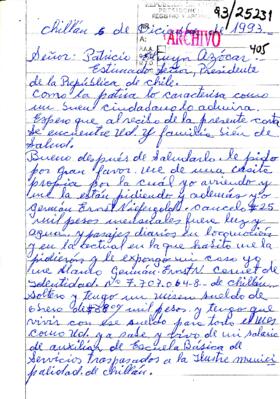 REPUBLICA
93/25231
ARCHIVO
405
Chillán 6 de Diciembre de 1993.
Señor: Patricio Aylwyn Azócar.
Estimado señor, Presidente
de la República de Chile.
Como la patria lo caracterisa como
un buen ciudadano lo admira.
Espero que al recibo de la presente carta
se encuentre Ud. y familia bien de
Salud.
Bueno después de Saludarlo le pido
por gran favor. me de una casita
propia por la cuál yo arriendo y
me la están pidiendo y además yo
Germán Ernst cancelo $25
mil pesos mensuales fuera luz y
agua. y pasajes diarios en locomoción
y en la actual en la que habito me la
pidieron y le expongo mi caso yo
me llamo Germán Ernst V carnet de
Identidad Nº 7.707.064-8. de chillán.
Soltero y tengo un mísero sueldo de
obrero de mil pesos. y tengo que
vivir con ese sueldo para todo el mes
como Ud. ya sabe y vivo de mi salario
de auxiliar de Escuela Básica de
Servicios traspasados a la Ilustre munici
palidad de chillán.